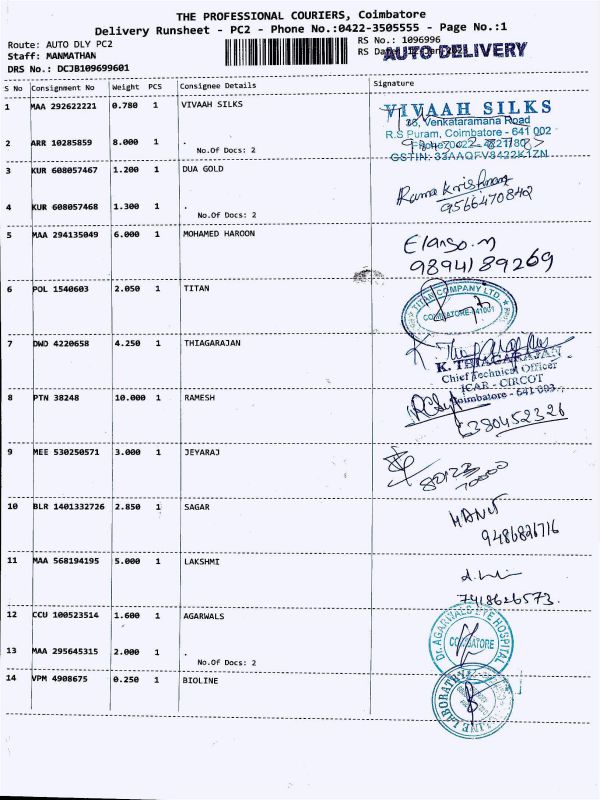 THE PROFESSIONAL COURIERS, Coimbatore
Delivery Runsheet - PC2 - Phone No.:0422-3505555 - Page No.:1
Route: AUTO DLY PC2
RS No.: 1096996
Staff: MANMATHAN
RS Date
AUTO DELIVERY
DRS No.: DCJB109699601
S No Consignment No Weight PCS Consignee Details Signature
1 MAA 292622221 0.780 1 VIVAAH SILKS
VIVAAH SILKS
38, Venkataramana Road
R.S Puram, Coimbatore - 641 002
GSTIN: 33AAQFV8422K1ZN
2 ARR 10285859 8.000 1 .
No.Of Docs: 2
3 KUR 608057467 1.200 1 DUA GOLD
Rama Krishnan
9566470842
4 KUR 608057468 1.300 1 .
No.Of Docs: 2
5 MAA 294135049 6.000 1 MOHAMED HAROON
Elango.m
9894189269
6 POL 1540603 2.050 1 TITAN
TITAN COMPANY LTD.
COIMBATORE-641001
7 DWD 4220658 4.250 1 THIAGARAJAN
K. THIAGARAJAN
Chief Technical Officer
ICAR - CIRCOT
Coimbatore - 641 003.
8 PTN 38248 10.000 1 RAMESH
6380452326
9 MEE 530250571 3.000 1 JEYARAJ
80123
70000
10 BLR 1401332726 2.850 1 SAGAR
9486826716
11 MAA 568194195 5.000 1 LAKSHMI
7418626573.
12 CCU 100523514 1.600 1 AGARWALS
Dr. AGARWALS EYE HOSPITAL
COIMBATORE
13 MAA 295645315 2.000 1 .
No.Of Docs: 2
14 VPM 4908675 0.250 1 BIOLINE